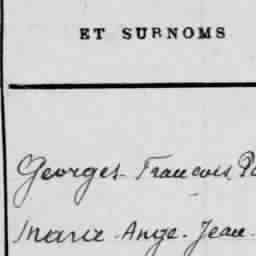 ET SURNOMS
Georges. Francois
Marie. Ange. Jean.